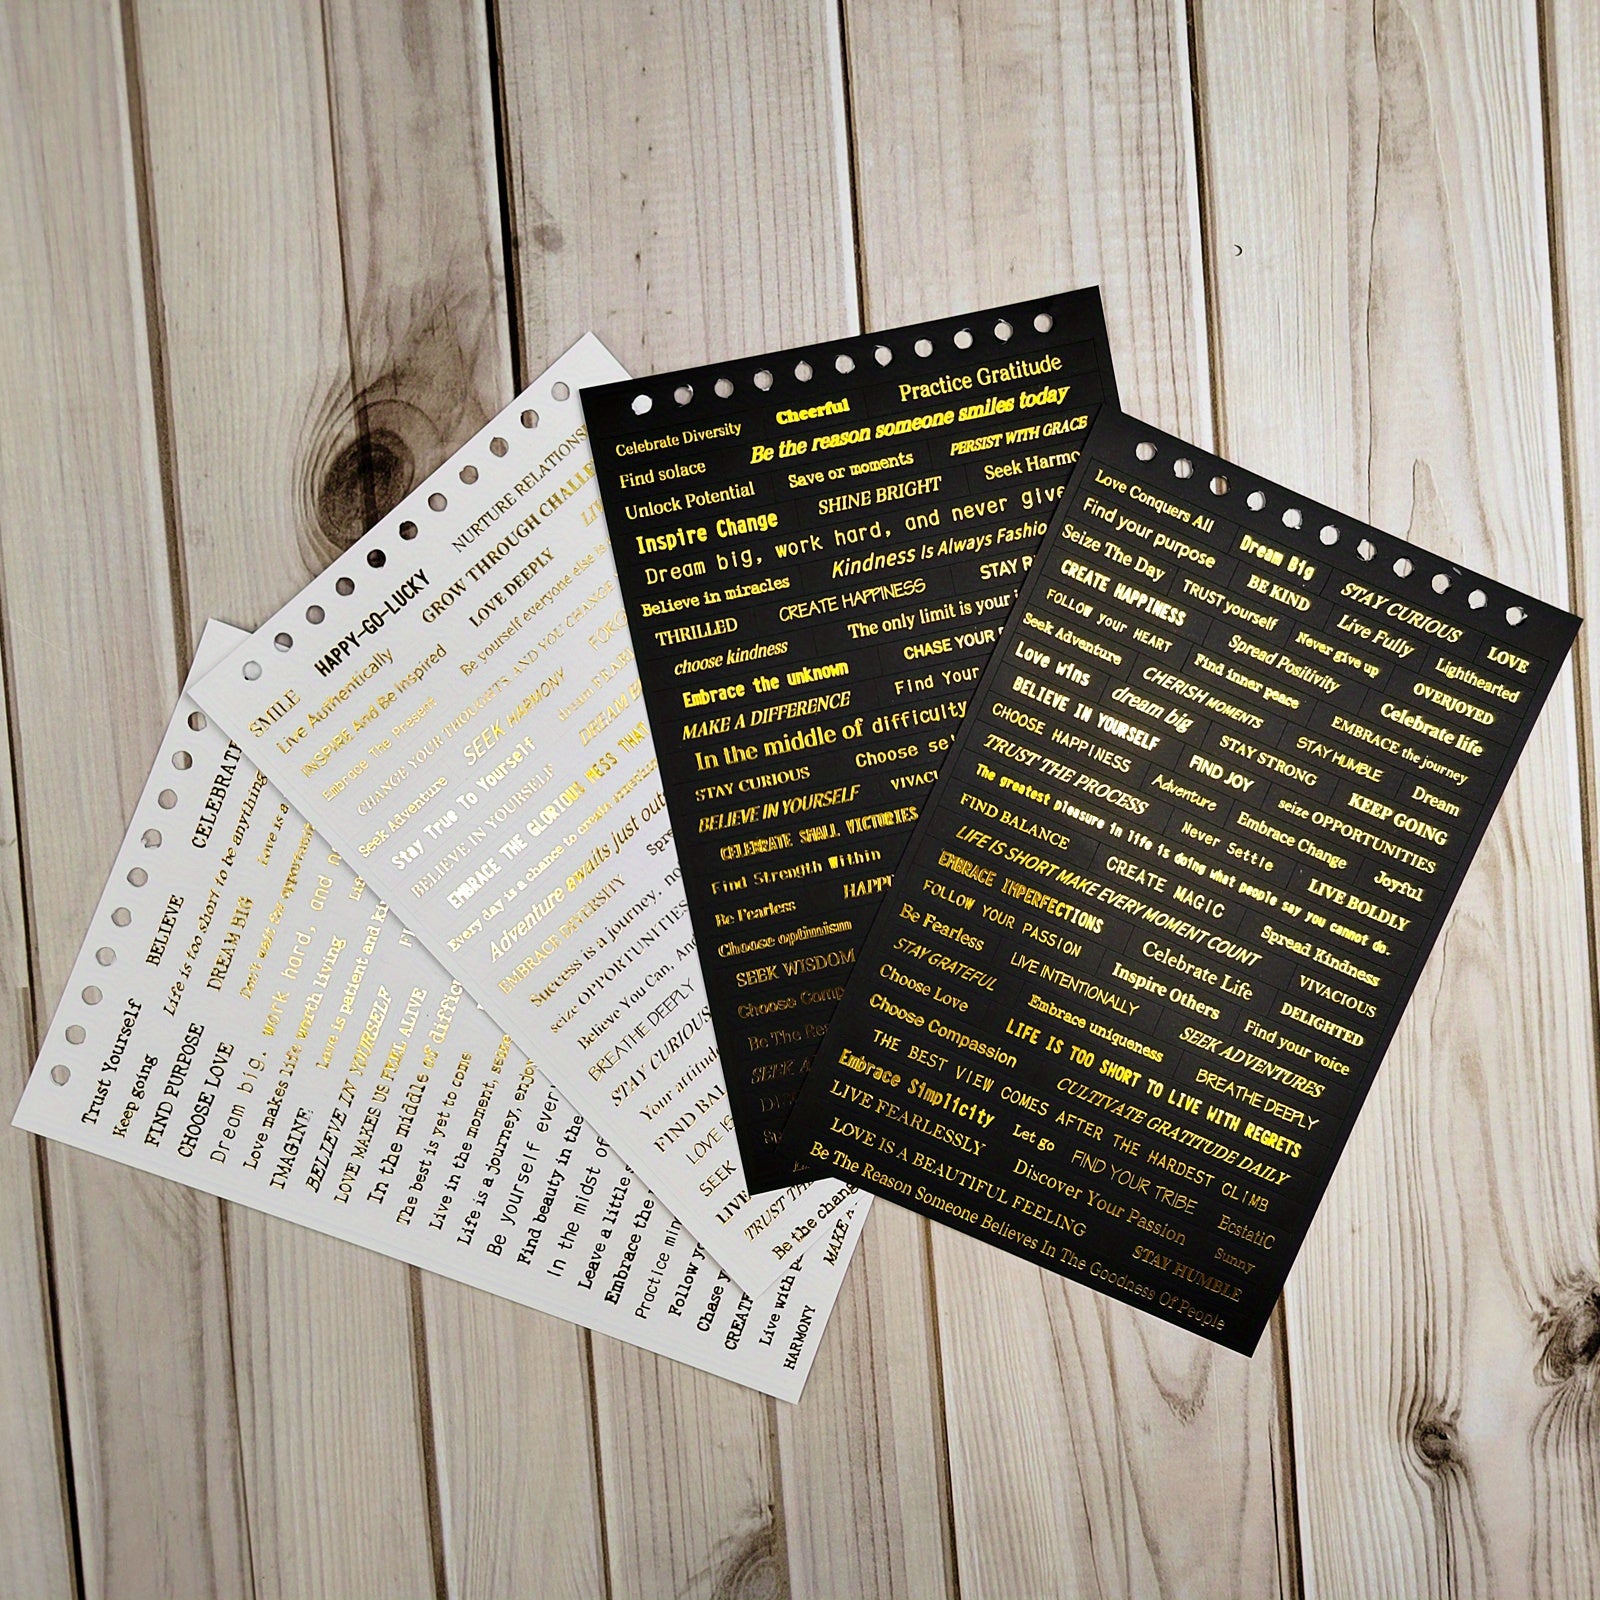 Trust Yourself
BELIEVE
CELEBRATE
Keep going
Life is too short to be anything
FIND PURPOSE
DREAM BIG
Love is a
CHOOSE LOVE
Don't wait for opportunity
Dream big, work hard, and
Love makes life worth living
IMAGINE
Love is patient and
BELIEVE IN YOURSELF
LOVE MAKES US FUEL ALIVE
In the middle of
The best is yet to come
Live in the moment,
Life is a journey, enjoy
Be yourself
Find beauty in the
In the midst of
Leave a little
Embrace the
Practice
Follow
Chase
CREATE
Live with
HARMONY
MAKE A
SMILE
HAPPY-GO-LUCKY
NURTURE
Live Authentically
GROW THROUGH
INSPIRE And Be Inspired
LOVE DEEPLY
Embrace The Present
Be yourself everyone else is
CHANGE YOUR THOUGHTS AND YOU CHANGE
Seek Adventure
SEEK HARMONY
Stay True To Yourself
dream
DREAM
BELIEVE IN YOURSELF
EMBRACE THE GLORIOUS MESS THAT
Every day is a chance to create
Adventure awaits just
EMBRACE DIVERSITY
Success is a journey,
seize OPPORTUNITIES
Believe You Can, And
BREATHE DEEPLY
STAY CURIOUS
Your
FIND
LOVE IS
SEEK
LIVE
TRUST
Be the
Celebrate Diversity
Cheerful
Practice Gratitude
Find solace
Be the reason someone smiles today
Unlock Potential
Save or moments
PERSIST WITH GRACE
Inspire Change
SHINE BRIGHT
Seek
Dream big, work hard, and never give
Believe in miracles
Kindness Is Always
THRILLED
CREATE HAPPINESS
STAY
choose kindness
The only limit is your
Embrace the unknown
CHASE YOUR
MAKE A DIFFERENCE
Find Your
In the middle of difficulty
STAY CURIOUS
Choose
BELIEVE IN YOURSELF
CELEBRATE SMALL VICTORIES
Find Strength Within
Be Fearless
Choose optimism
SEEK WISDOM
Choose
Be The
SEEK
Love Conquers All
Find your purpose
Dream Big
STAY CURIOUS
LOVE
Seize The Day
BE KIND
Live Fully
Lighthearted
CREATE HAPPINESS
TRUST yourself
Never give up
OVERJOYED
FOLLOW your HEART
Spread Positivity
Celebrate life
Seek Adventure
Find inner peace
EMBRACE the journey
Love wins
CHERISH MOMENTS
STAY HUMBLE
Dream
BELIEVE IN YOURSELF
dream big
STAY STRONG
KEEP GOING
CHOOSE HAPPINESS
FIND JOY
seize OPPORTUNITIES
TRUST THE PROCESS
Adventure
Embrace Change
Joyful
The greatest pleasure in life is doing what people say you cannot do.
FIND BALANCE
Never Settle
LIVE BOLDLY
LIFE IS SHORT MAKE EVERY MOMENT COUNT
EMBRACE IMPERFECTIONS
CREATE MAGIC
Spread Kindness
FOLLOW YOUR PASSION
Celebrate Life
VIVACIOUS
Be Fearless
LIVE INTENTIONALLY
Inspire Others
DELIGHTED
STAY GRATEFUL
Embrace uniqueness
Find your voice
Choose Love
LIFE IS TOO SHORT TO LIVE WITH REGRETS
SEEK ADVENTURES
Choose Compassion
BREATHE DEEPLY
THE BEST VIEW COMES AFTER THE HARDEST CLIMB
Embrace Simplicity
CULTIVATE GRATITUDE DAILY
LIVE FEARLESSLY
Let go
FIND YOUR TRIBE
EcstatiC
LOVE IS A BEAUTIFUL FEELING
Discover Your Passion
Sunny
Be The Reason Someone Believes In The Goodness Of People
STAY HUMBLE